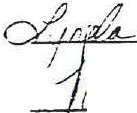 Lynda
1